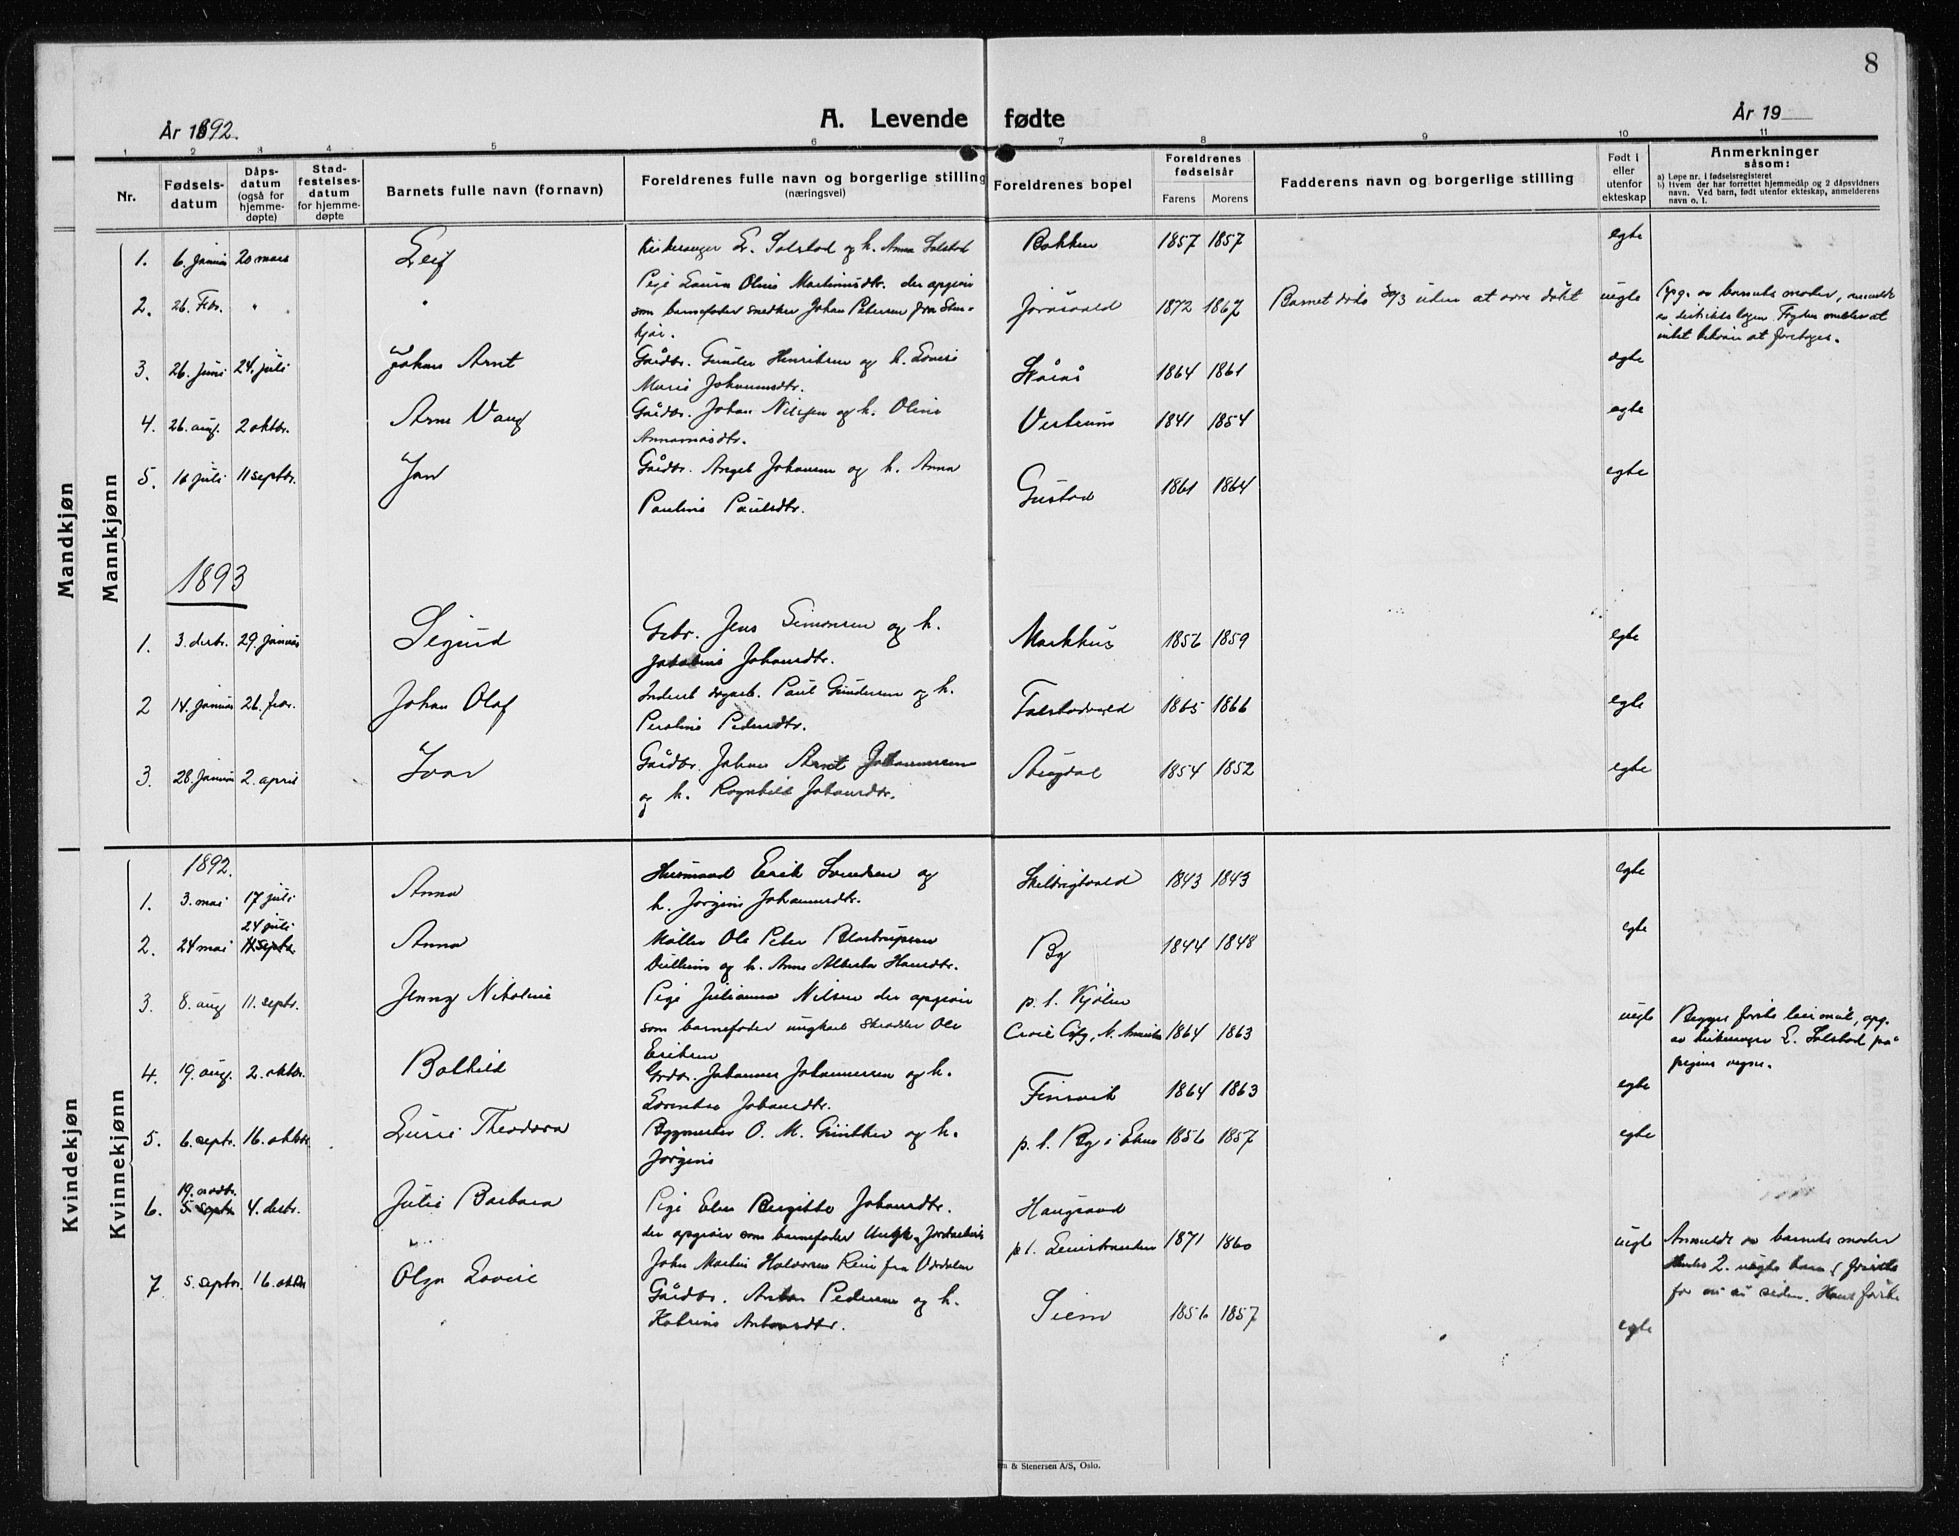 8
År 1892.
A. Levende fødte
År 19
1 2 3 4 5 6 7 8 9 10 11
Nr.
Fødsels-datum
Dåps-datum (også for hjemme-døpte)
Stad-festelses-datum for hjemme-døpte
Barnets fulle navn (fornavn)
Foreldrenes fulle navn og borgerlige stilling
(næringsvei)
Foreldrenes bopel
Foreldrenes fødselsår
Farens Morens
Fadderens navn og borgerlige stilling
Født i eller utenfor ekteskap
Anmerkninger
såsom:
a) Løpe nr. i fødselsregisteret
b) Hvem der har forrettet hjemmedåp og 2 dåpsvidners
navn. Ved barn, født utenfor ekteskap, anmelderens
navn o. l.
Mandkjøn
Mannkjønn
1. 6. januar 20 mars Leif Kirkesanger E. Solstad og h. Anna Solstad Bakken 1857 1857 egte
2. 26. Febr. " " Pige Laura Oline Martinusdtr. der opgiver
som barnefader snedker Johan Petersen fra Sten-
kjær. 1872 1867 Barnet døde 30/3 uten at være døbt uegte
Opg. av barnets moder, anmeldt
av distriktslægen.
intet videre at foretages.
3. 26. juni 24. juli Johan Arnt Gårdbr. Gunder Henriksen og h. Lovise
Marie Johannesdtr. 1864 1861 egte
4. 26. aug. 2 oktbr. Arne Vang Gårdbr. Johan Nilssen og h. Oline
Vestrum 1841 1854 egte
5. 16 juli 11 septbr. Jon Gårdbr. Angel Johansen og h. Anna
Pauline Paulsdtr. Gustad 1861 1864 egte
1893
1. 3. desbr. 29. januar Sigurd Grbr. Jens Simonsen og h.
Jakobine Johansdtr. Markhus 1856 1859 egte
2 14. januar 26. febr. Johan Olaf Inderst dagarb. Paul Gundersen og h.
Petrine Pedersdtr. 1865 1866 egte
3. 28. januar 2. april Ivar Gårdbr. Johan Arnt Johannessen
og h. Ragnhild Johansdtr. 1854 1852 egte
Kvindekjøn
Kvinnekjønn
1892.
1. 3. mai 17 juli Anna Husmand Erik Svendsen og
h. Jørgine Johannesdtr. 1843 1843 egte
2. 24 mai 24 juli Anna Møller Ole Peter
og h. Anne Alberta Hansdtr. By 1844 1848 egte
3. 8. aug 11. septbr. Jenny Nikoline Pige Julianna Nilsen der opgiver
som barnefader ungkarl skrædder Ole
Eriksen p. t. Kjølen
City, N. Amerika 1864 1863 uegte
Begges første leiermål, opg.
av kirkesanger E. Solstad på
pigens vegne.
4. 19. aug. 2. oktbr. Bolhild Grdbr. Johannes Johannessen og h.
Lorentse Johansdtr. Finsvik 1864 1863 egte
5. 6. septbr. 16. oktbr. Laura Theodora Bygmester O. M. Günther og h.
Jørgine p. t. By i Egge 1856 1857 egte
6. 19. novbr. 4. desbr. Julie Barbara Pige Elen Birgitte Johansdtr.
der opgiver som barnefader Ungk.
John Martin Halvorsen Rein fra Værdalen Haugsand
p.t. 1871 1860 uegte
Anmeldt av barnets moder
Hendes 2. uegte barn (første
for siden. Hans første
7 5. septbr. 16. oktbr Olga Lovise Gårdbr. Anton Pedersen og h.
Katrine Antonsdtr. Siem 1856 1857 egte
& Stenersen A/S, Oslo.